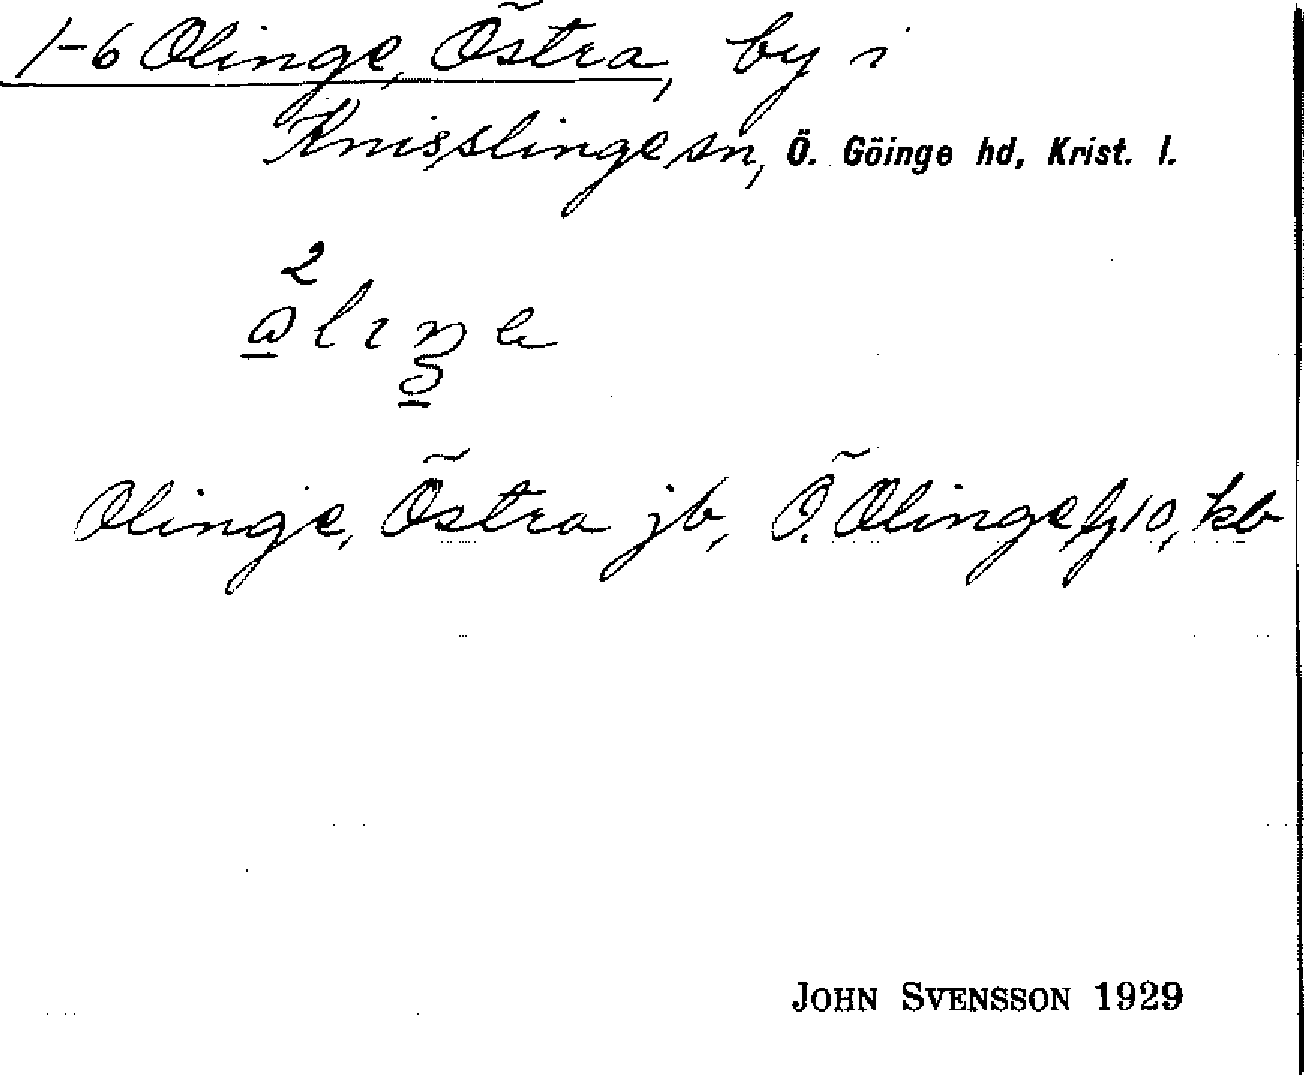 1-6 Olinge, Östra, by i
Knisslinge sn, Ö. Göinge hd, Krist. l.
2
Olinge, Östra jb, Ö. Olinge fj 10, kb
JOHN SVENSSON 1929